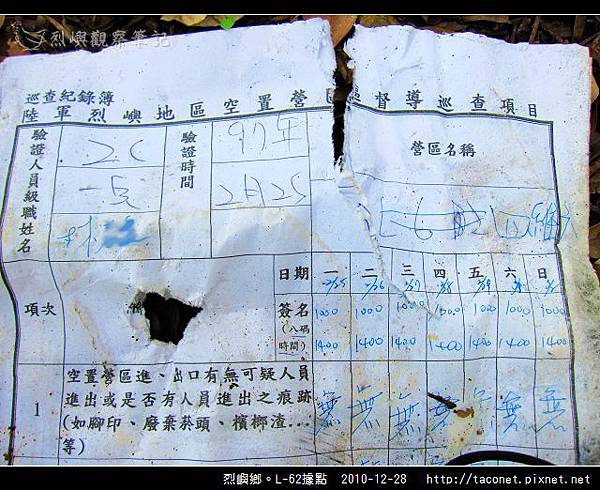 烈嶼觀察筆記
巡查紀錄簿
陸軍烈嶼地區空置營區督導巡查項目
驗證人員級職姓名
驗證時間
97年
2月25
營區名稱
日期 一 二 三 四 五 六 日
2/25 2/26 2/27
項次
簽名(八碼時間)
1000 1000 1000 1000 1000 1000 1000
1400 1400 1400 1400 1400 1400 1400
1
空置營區進、出口有無可疑人員
進出或是否有人員進出之痕跡
(如腳印、廢棄菸頭、檳榔渣...
等)
無 無 無 無 無 無 無
烈嶼鄉。L-62據點 2010-12-28 http://taconet.pixnet.net